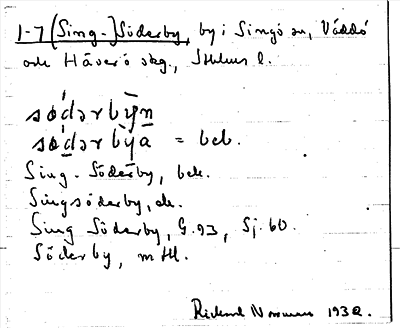 1-7 (Sing-)Söderby, by i Singö sn, Väddö
och Häverö skg., Sthlms l.
sǿdərbȳn
sǿdərbȳa = beb.
Sing-Söderby, bek.
Singsöderby, ek.
Sing Söderby, G.93, Sj. 60.
Söderby, mtl.
Rickard 1932.